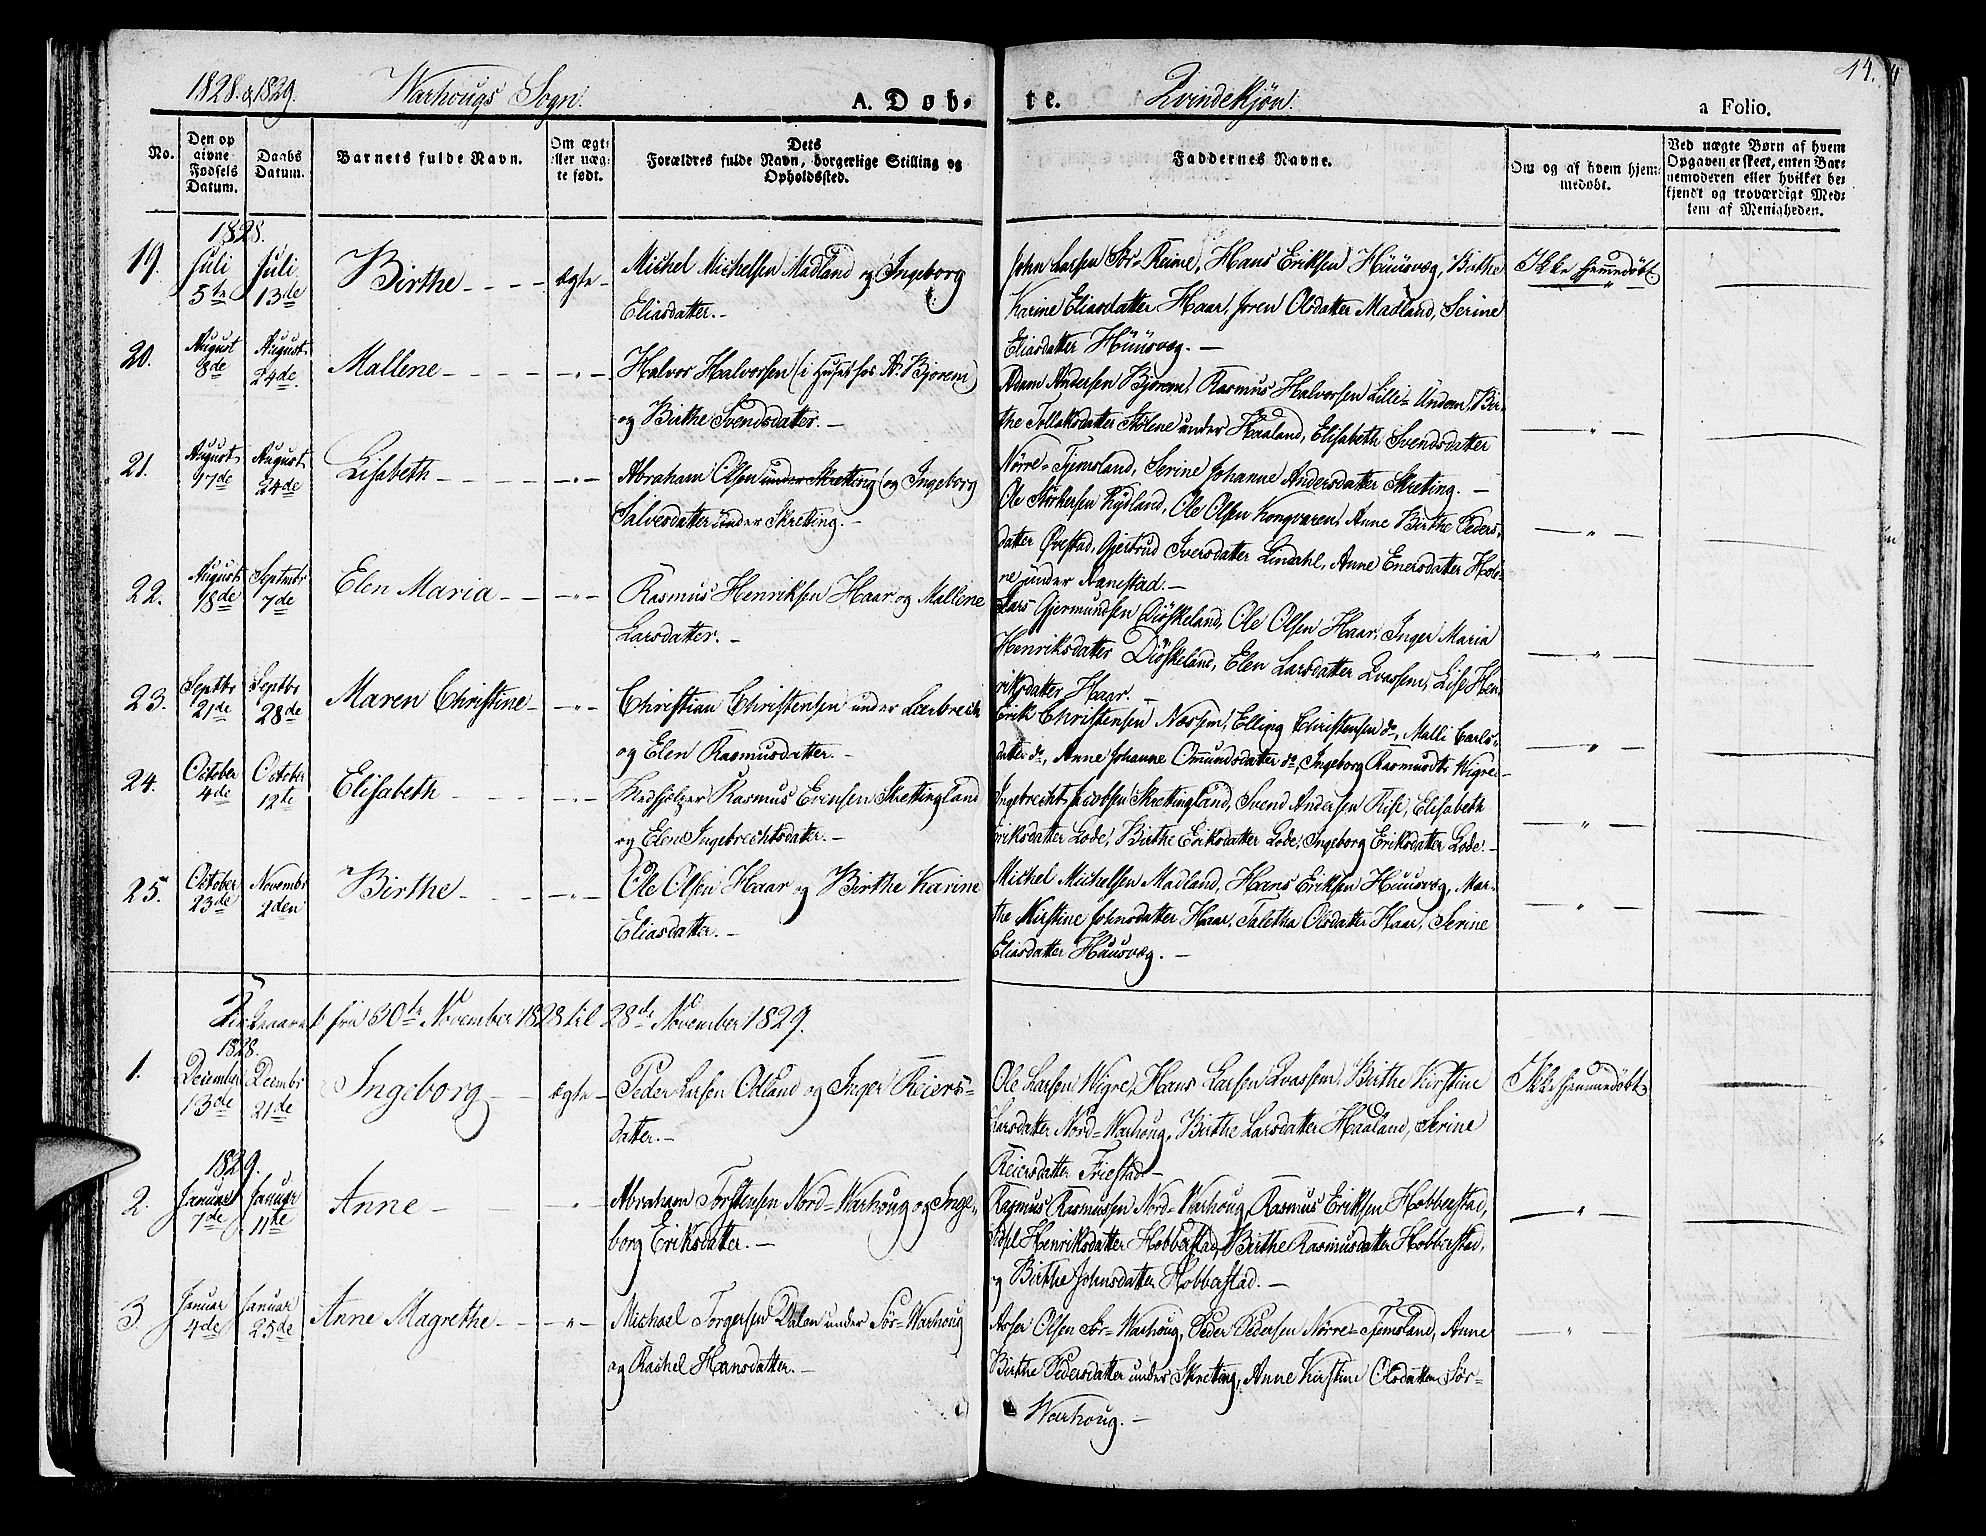 1828 & 1829. Warhougs Sogn. A. Døb-
te. Qvindekjøn. a Folio. 14.
No.
Den op
givne
Fødsels
Datum.
Daabs
Datum.
Barnets fulde Navn.
Om ægte
eller uæg-
te født.
Dets
Forældres fulde Navn, borgerlige Stilling og
Opholdssted.
Faddernes Navne.
Om og af hvem hjem-
medøbt.
Ved uægte Børn af hvem
Opgaven er skeet, enten Bar-
nemoderen eller hvilket be-
kjendt og troværdigt Med-
lem af Menigheden.
1828.
19. Juli 5te Juli 13de Birthe ægte Michel Michelsen Madland og Ingeborg
Eliasdatter.
John Larsen Sör-Reime, Hans Eriksen Hüüsvæg, Birthe
Karine Eliasdatter Haar, Joren Olsdatter Madland, Serine
Eliasdatter Hüüsvæg.
Ikke hjemmedöbt.
20. August 8de August 24de Mallene " Halvor Halvorsen (i Huset hos A. Bjorem)
og Birthe Svendsdatter.
Adam Andersen Bjorem, Rasmus Halvorsen Lille-Undem, Bir-
the Tollaksdatter Stölene under Haaland, Elisabeth Svendsdatter
Nörre-Tjemsland, Serine Johanne Andersdatter Skreting.
21. August 17de August 24de Lisabeth " Abraham Olsen under Skretting og Ingeborg
Salvesdatter under Skretting.
Ole Störkersen Kydland, Ole Olsen Kongvaren, Anne Birthe Peders-
datter Øvestad, Gjertrud Iversdatter Lindahl, Anne Enersdatter Hole-
ne under Aanestad.
22. August 18de Septmbr 7de Elen Maria " Rasmus Henriksen Haar og Mallene
Larsdatter.
Lars Gjermundsen Diöskeland, Ole Olsen Haar, Inger Maria
Henriksdatter Diöskeland, Elen Larsdatter Qvassem, Lise Hen-
riksdatter Haar.
23. Septbr 21de Septbr 28de Maren Christine " Christian Christensen under
og Elen Rasmusdatter.
Erik Christensen Næsem, Elling Christensen do, Malli Carls-
datter do, Anne Johanne Omundsdatter do, Ingeborg Rasmusdtr Wigre.
24. October 4de October 12te Elisabeth " Medhjelper Rasmus Evensen Skrettingland
og Elen Ingebrechtsdatter.
Ingebrecht Jacobsen Skrettingland, Svend Andersen Rise, Elisabeth
Eriksdatter Lode, Birthe Eriksdatter Lode, Ingeborg Eriksdatter Lode.
25. October 23de Novembr 2den Birthe " Ole Olsen Haar og Birthe Karine
Eliasdatter.
Michel Michelsen Madland, Hans Eriksen Huusvæg, Mar-
the Kirstine Johnsdatter Haar, Taletha Olsdatter Haar, Serine
Eliasdatter Huusvæg.
Kirkeaaret fra 30te November 1828 til 28de November 1829.
1828.
1. December 13de Decmbr 21de Ingeborg ægte Peder Larsen Ödland og Inger Reiers-
datter.
Ole Larsen Wigre, Hans Larsen Qvassem, Birthe Kirstine
Larsdatter Nord-Warhoug, Birthe Larsdatter Haaland, Serine
Reiersdatter Friestad
Ikke hjemmedöbt
1829.
2. Januar 7de Januar 11te Anne " Abraham Torstensen Nord-Warhoug og Inge-
borg Eriksdatter.
Rasmus Rasmussen Nord-Warhoug, Rasmus Eriksen Hobberstad,
Sidsel Henriksdatter Hobberstad, Birthe Rasmusdatter Hobberstad,
og Birthe Johnsdatter Hobberstad.
3. Januar 4de Januar 25de Anne Magrethe " Michael Torgersen Dalen under Sör-Warhoug
og Rachel Hansdatter.
Aser Olsen Sör-Warhoug, Peder Pedersen Nörre-Tjemsland, Anne
Birthe Pedersdatter under Skreting, Anne Kirstine Olsdatter Sör-
Warhoug.